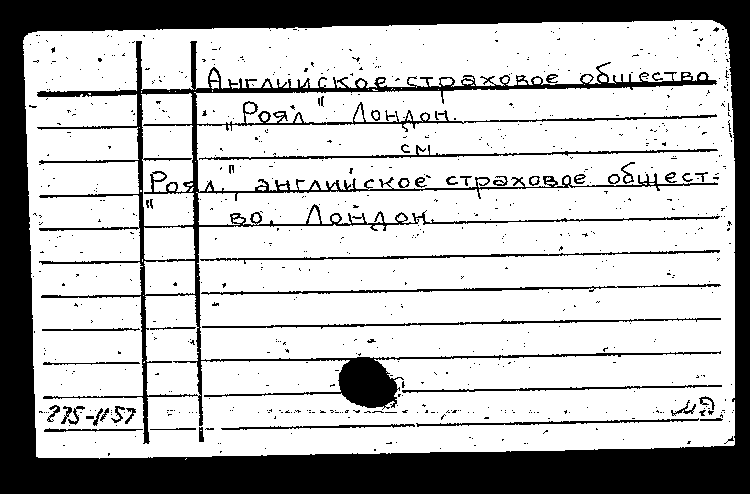 Английское страховое общество
„Роял" Лондон.
см.
„Роял", английское страховое общест-
во. Лондон.
275-1157
МД